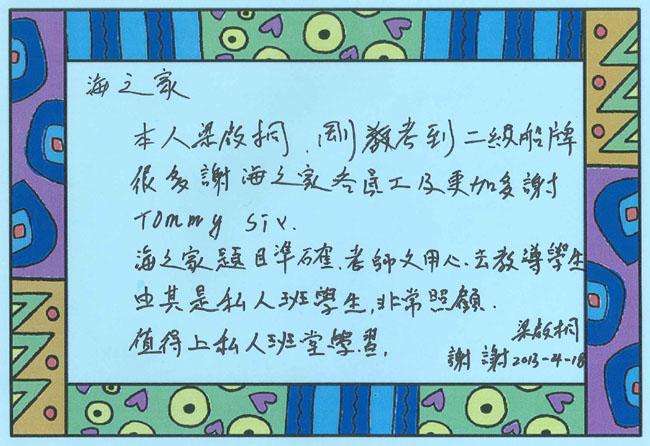 海之家
本人梁啟桐 剛教考到二級船牌
很多謝海之家各員工及更加多謝
Tommy sir.
海之家題目準確、老師又用心去教導學生
由其是私人班學生,非常照顧.
值得上私人班堂學習,
梁啟桐
謝謝 2013-4-18